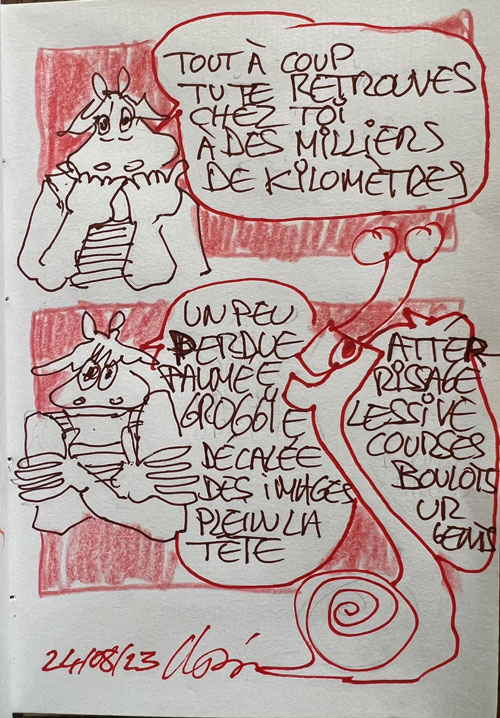 TOUT À COUP
TU TE RETROUVES
CHEZ TOI
À DES MILLIERS
DE KILOMÈTRES
UN PEU
PERDUE
PAUMÉE
GROGGIE
DÉCALÉE
DES IMAGES
PLEIN LA
TÊTE
ATTER
RISSAGE
LESSIVE
COURSES
BOULOTS
UR
GENTS
24/08/23